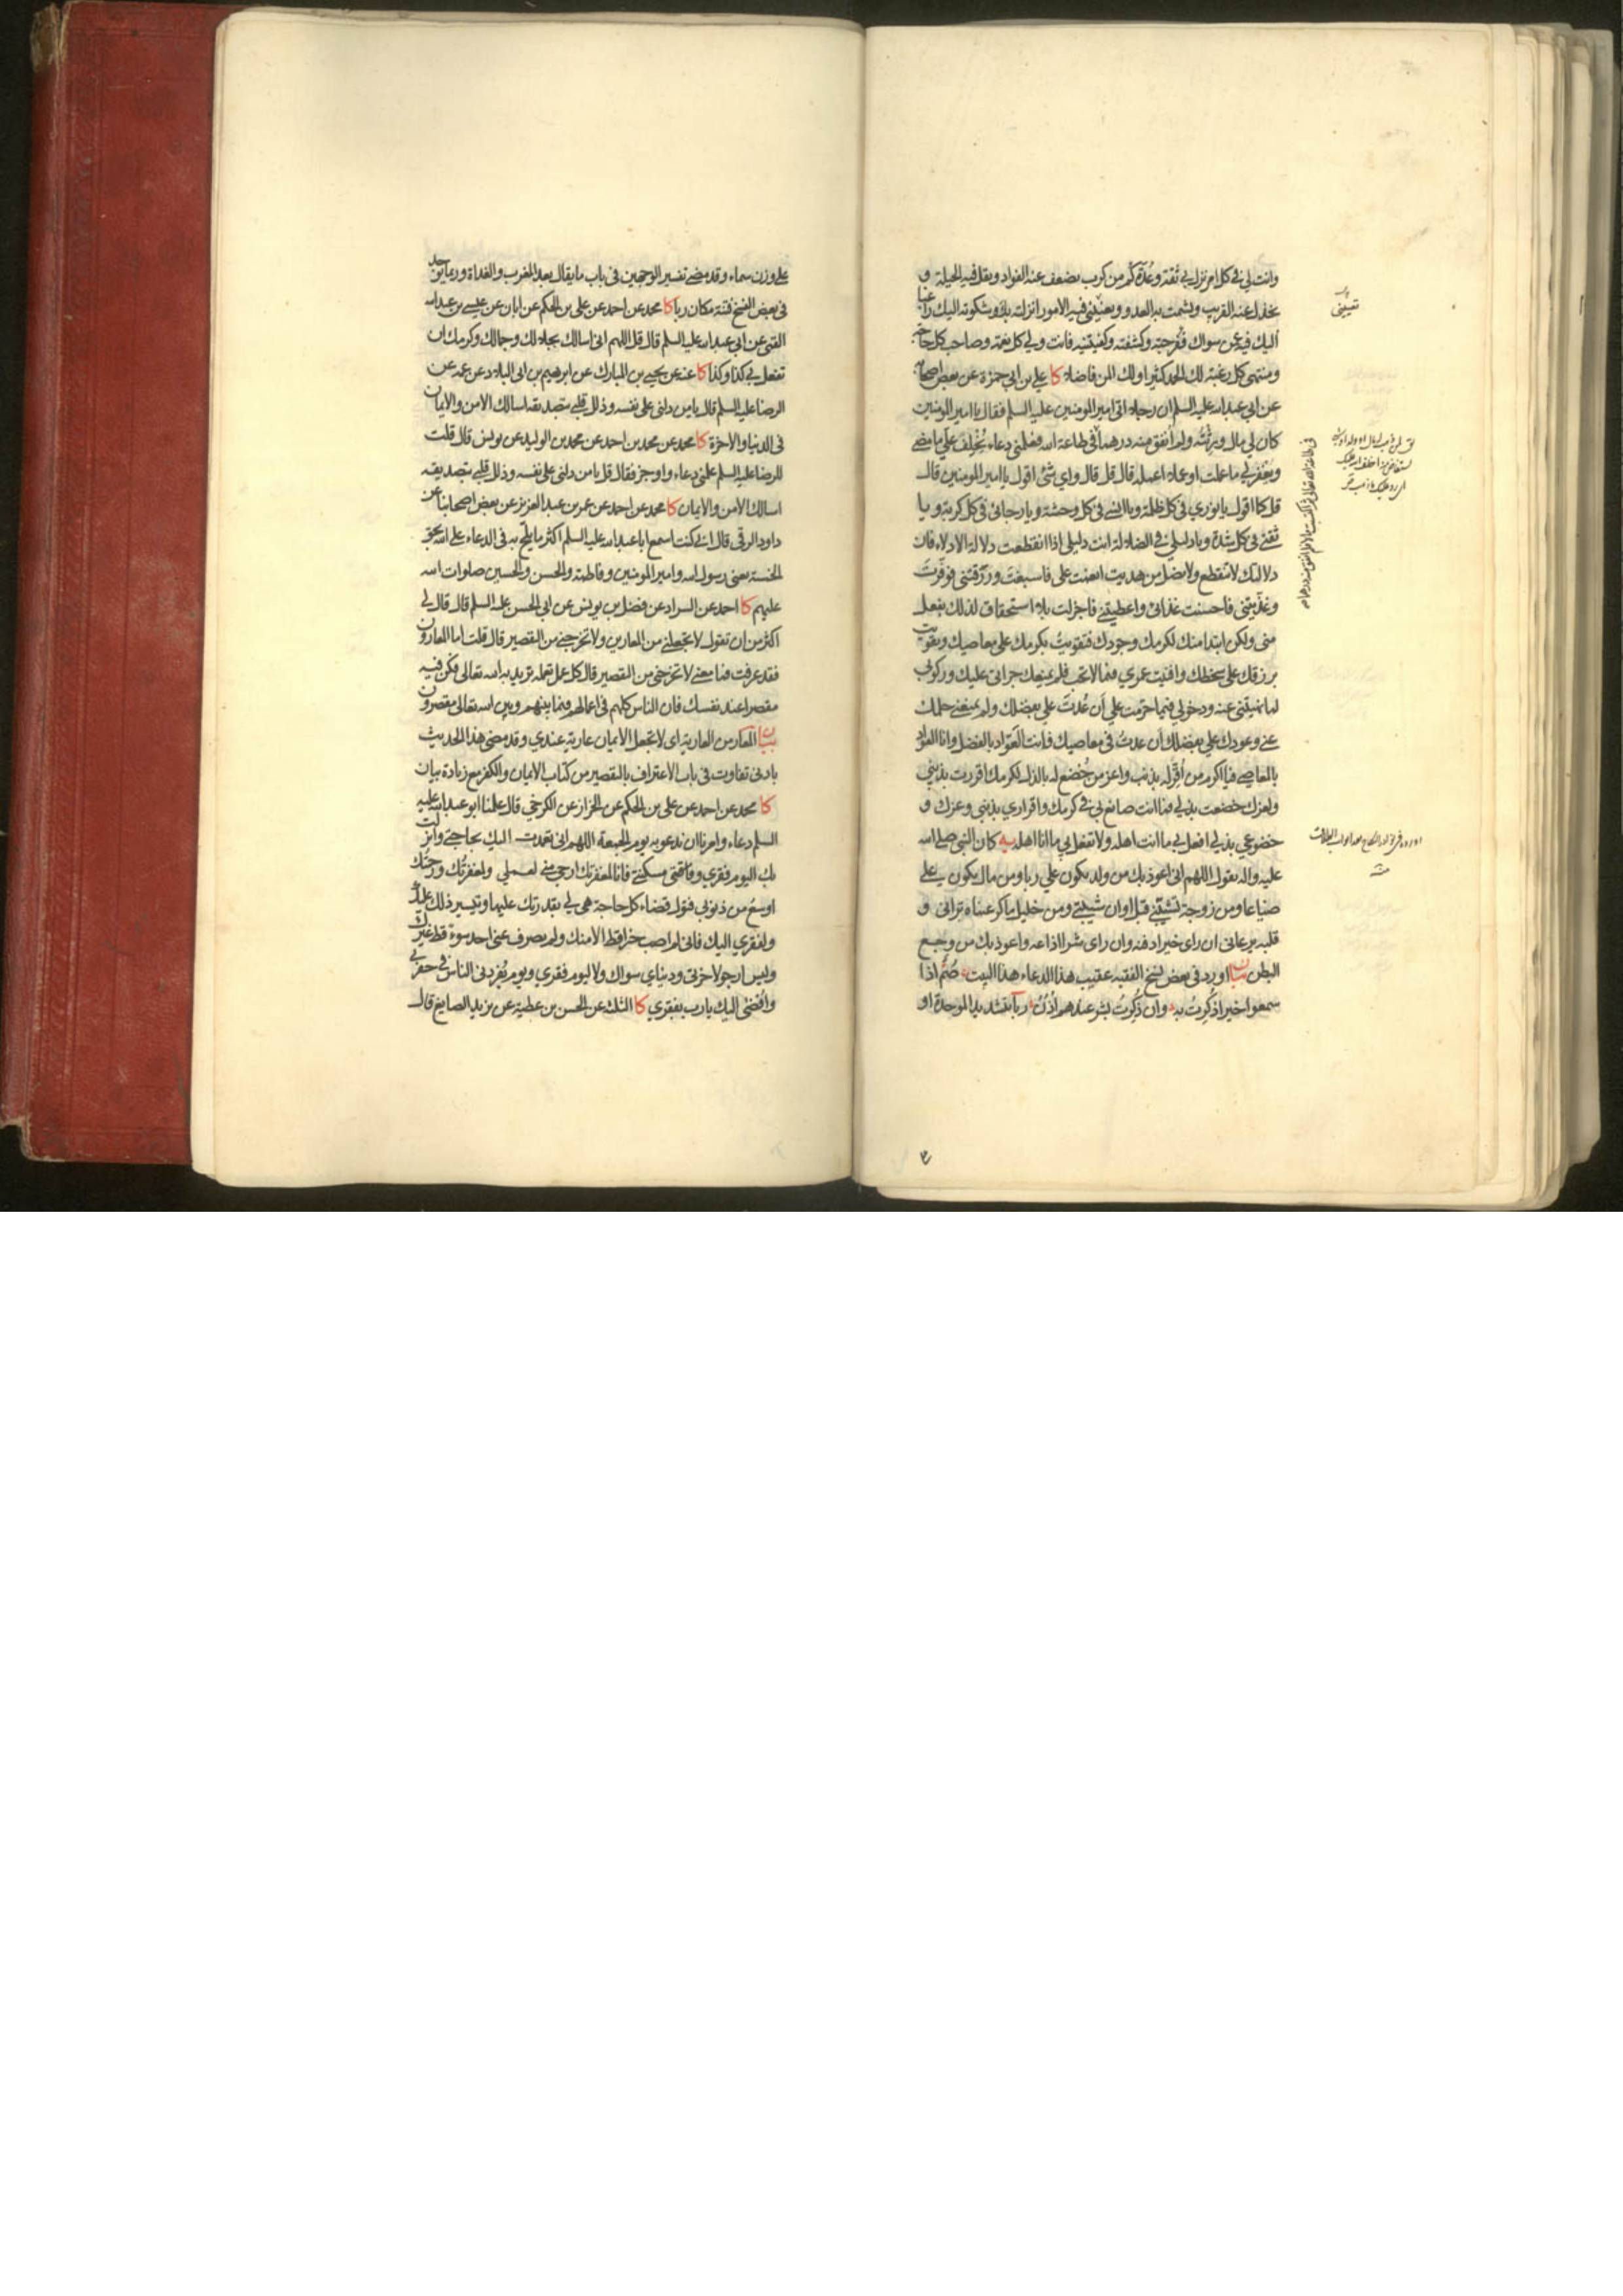 وانت لي في كل امر نزل بي ثقة وعُدّة كم من كرب يضعف عنه الفؤاد ويقل فيه الحيلة و
يخذل عنه القريب ويشمت به العدو ويعنيني فيه الامور انزلته بك وشكوته اليك راغبا
اليك فيه عن سواك ففرجته وكشفته وكفيتنيه فانت ولي كل نعمة وصاحب كل حاجة
ومنتهى كل رغبة لك الحمد كثيرا ولك المن فاضلا كا علي بن ابي حمزة عن بعض اصحابه
عن ابي عبدالله عليه السلم ان رجلا اتى امير المومنين عليه السلم فقال يا امير المومنين
كان لي مال ورثته ولم أنفق منه درهما في طاعة الله فعلمني دعاء يُخلِف علي ما مضى
ويغفر لي ما عملت او عملا اعمله قال قل قال واي شئ اقول يا امير المومنين قال
قل كما اقول يا نوري في كل ظلمة ويا انسي في كل وحشة ويا رجائي في كل كربة ويا
ثقتي في كل شدة ويا دليلي في الضلالة انت دليلي اذا انقطعت دلالة الادلاء فان
دلالتك لا تنقطع ولا يضل من هديت انعمت علي فاسبغت ورزقتني فوفرت
وغذيتني فاحسنت غذائي واعطيتني فاجزلت بلا استحقاق لذلك بفعل
مني ولكن ابتداء منك لكرمك وجودك فتقويت بكرمك على معاصيك وتقويت
برزقك على سخطك وافنيت عمري فيما لا تحب فلم يمنعك جرأتي عليك وركوبي
لما نهيتني عنه ودخولي فيما حرمت علي أن عُدتَ علي بفضلك ولم يمنعني حلمك
عني وعودك علي بفضلك أن عدتُ في معاصيك فانت العوّاد بالفضل وانا العوّاد
بالمعاصي فيا اكرم من أُقرّ له بذنب واعز من خُضع له بالذل لكرمك اقررت بذنبي
ولعزك خضعت بذلي فما انت صانع بي في كرمك واقراري بذنبي وعزك و
خضوعي بذلي افعل بي ما انت اهله ولا تفعل بي ما انا اهله يه كان النبي صلى الله
عليه واله يقول اللهم اني اعوذ بك من ولد يكون علي ربا ومن مال يكون علي
ضياعا ومن زوجة تشيبني قبل اوان شيبتي ومن خليل ماكر عيناه تراني و
قلبه يرعاني ان راى خيرا دفنه وان راى شرا اذاعه واعوذ بك من وجع
البطن بيان اورد في بعض نسخ الفقيه عقيب هذا الدعاء هذا البيت صُمٌّ اذا
سمعوا خيرا ذُكِرتُ به وان ذُكِرتُ بشر عندهم أذُنُ ربّا بتشديد الموحدة او
في طاعة الله تعالى ثم اكتسبت مالا فلم انفق منه درهما
على وزن سماء وقد مضى تفسير الوجهين في باب ما يقال بعد المغرب والغداة وربما يوجد
في بعض النسخ فتنة مكان ربا كا محمد عن احمد عن علي بن الحكم عن ابان عن عيسى بن عبدالله
القمي عن ابي عبدالله عليه السلم قال قل اللهم اني اسالك بجلالك وجمالك وكرمك ان
تفعل بي كذا وكذا كا عنه عن يحيى بن المبارك عن ابرهيم بن ابي البلاد عن عمه عن
الرضا عليه السلم قال يا من دلني على نفسه وذلل قلبي بتصديقه اسالك الامن والايمان
في الدنيا والاخرة كا محمد عن محمد بن احمد عن محمد بن الوليد عن يونس قال قلت
للرضا عليه السلم علمني دعاء واوجز فقال قل يا من دلني على نفسه وذلل قلبي بتصديقه
اسالك الامن والايمان كا محمد عن احمد عن عمر بن عبد العزيز عن بعض اصحابنا عن
داود الرقي قال اني كنت اسمع ابا عبدالله عليه السلم اكثر ما يلح به في الدعاء على الله بحق
الخمسة يعني رسول الله وامير المومنين وفاطمة والحسن والحسين صلوات الله
عليهم كا احمد عن السراد عن فضل بن يونس عن ابي الحسن عليه السلم قال قال لي
اكثر من ان تقول لا تجعلني من المعارين ولا تخرجني من التقصير قال قلت اما المعارون
فقد عرفت فما معنى لا تخرجني من التقصير قال كل عمل تعمله تريد به الله تعالى فكن فيه
مقصرا عند نفسك فان الناس كلهم في اعمالهم فيما بينهم وبين الله تعالى مقصرون
بيان المعار من العارية اى لا تجعل الايمان عارية عندي وقد مضى هذا الحديث
بادنى تفاوت في باب الاعتراف بالتقصير من كتاب الايمان والكفر مع زيادة بيان
كا محمد عن احمد عن علي بن الحكم عن الخراز عن الكرخي قال علمنا ابو عبدالله عليه
السلم دعاء وامرنا ان ندعو به يوم الجمعة اللهم اني تعمدت اليك بحاجتي وانزلت
بك اليوم فقري وفاقتي ومسكنتي فانا لمغفرتك ارجى مني لعملي ولمغفرتُك ورحمتك
اوسع من ذنوبي فتول قضاء كل حاجة هي لي بقدرتك عليها وتيسير ذلك عليك
ولفقري اليك فاني لم اصب خيرا قط الا منك ولم يصرف عني احد سوء قط غيرك
وليس ارجو لاخرتي ودنياي سواك ولا ليوم فقري ويوم يُفردني الناس في حفرتي
وافضي اليك يا رب بفقري كا الثلثة عن الحسن بن عطية عن يزيد الصايغ قال